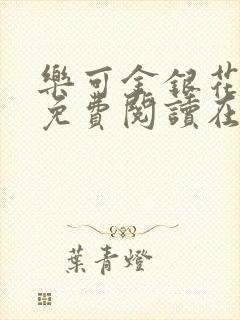 樂可金銀花
免費閱讀在
葉青燈